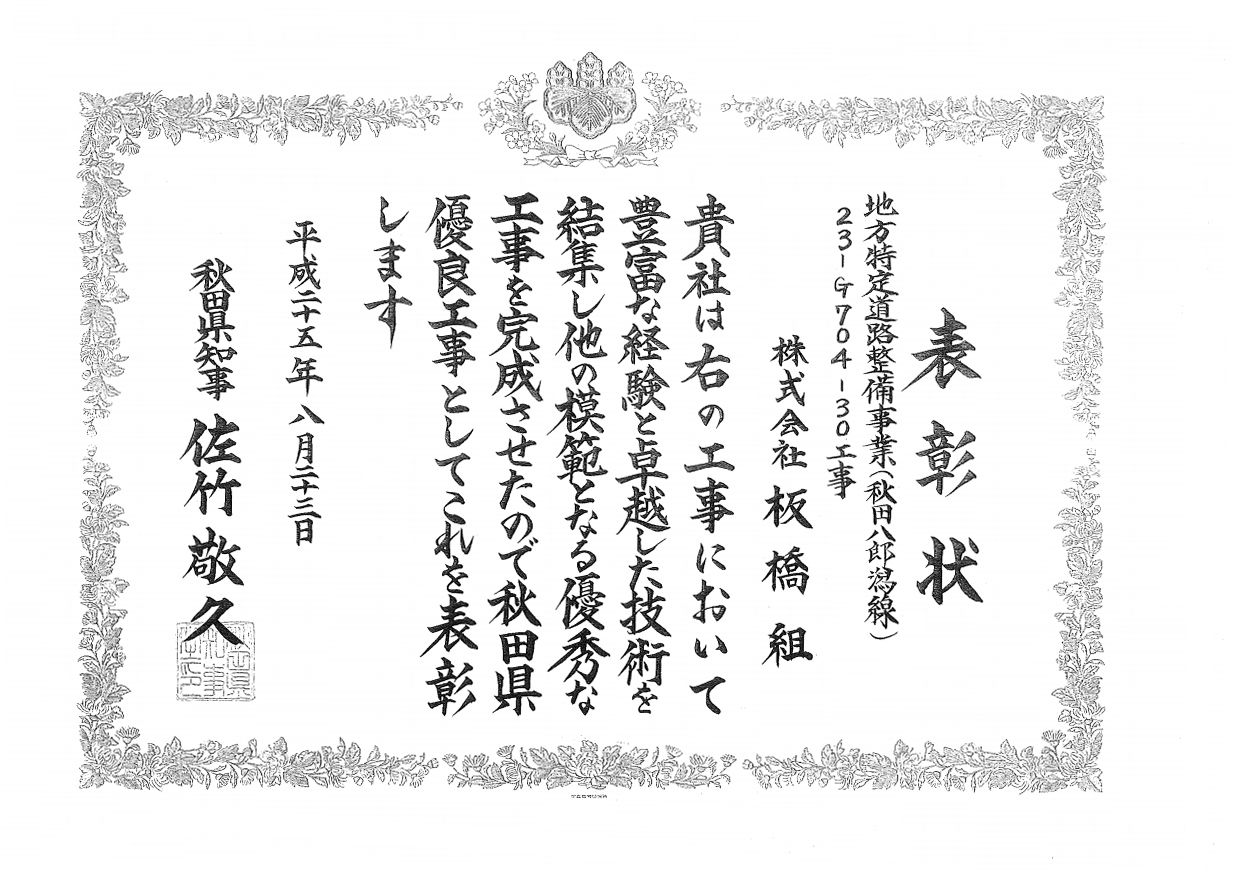 表彰状
地方特定道路整備事業(秋田八郎潟線)
23-G704-30工事
株式会社 板橋組
貴社は右の工事において
豊富な経験と卓越した技術を
結集し他の模範となる優秀な
工事を完成させたので秋田県
優良工事としてこれを表彰
します
平成二十五年八月二十三日
秋田県知事 佐竹敬久